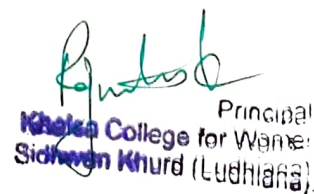 Principal
Khalsa College for Women
Sidhwan Khurd (Ludhiana)